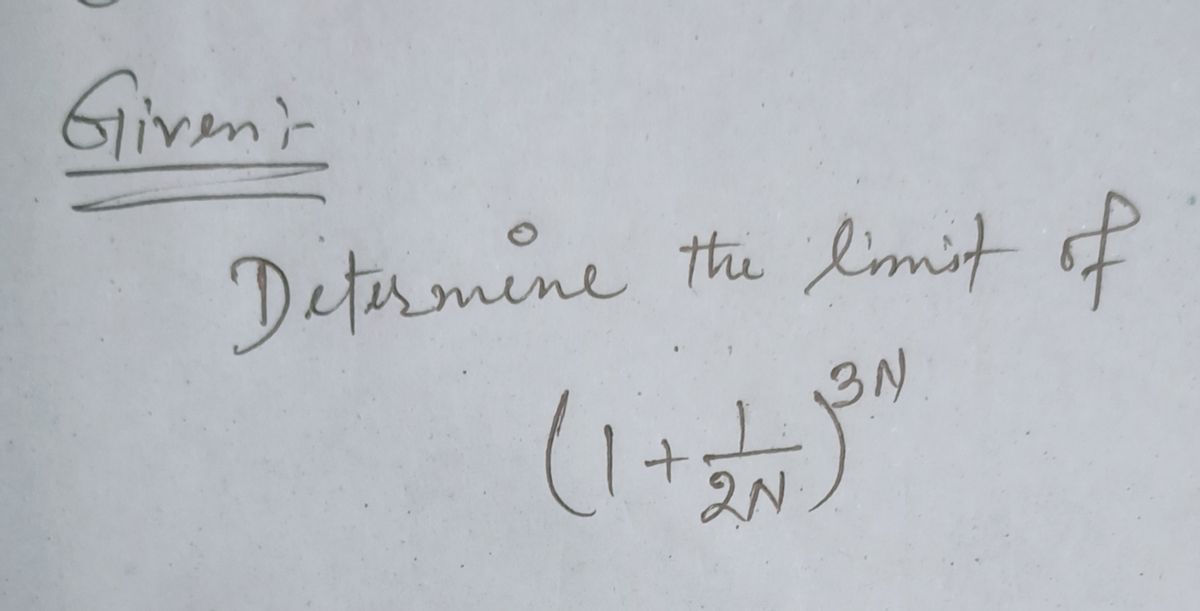 Given:-
Determine the limit of
(1 + 1/2N)^3N